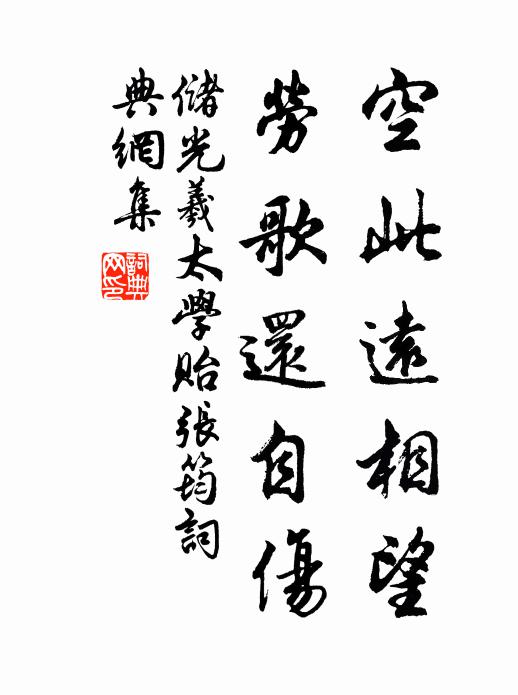 空此遠相望
勞歌還自傷
儲光羲太學貽張筠詞
典網集
詞典網印